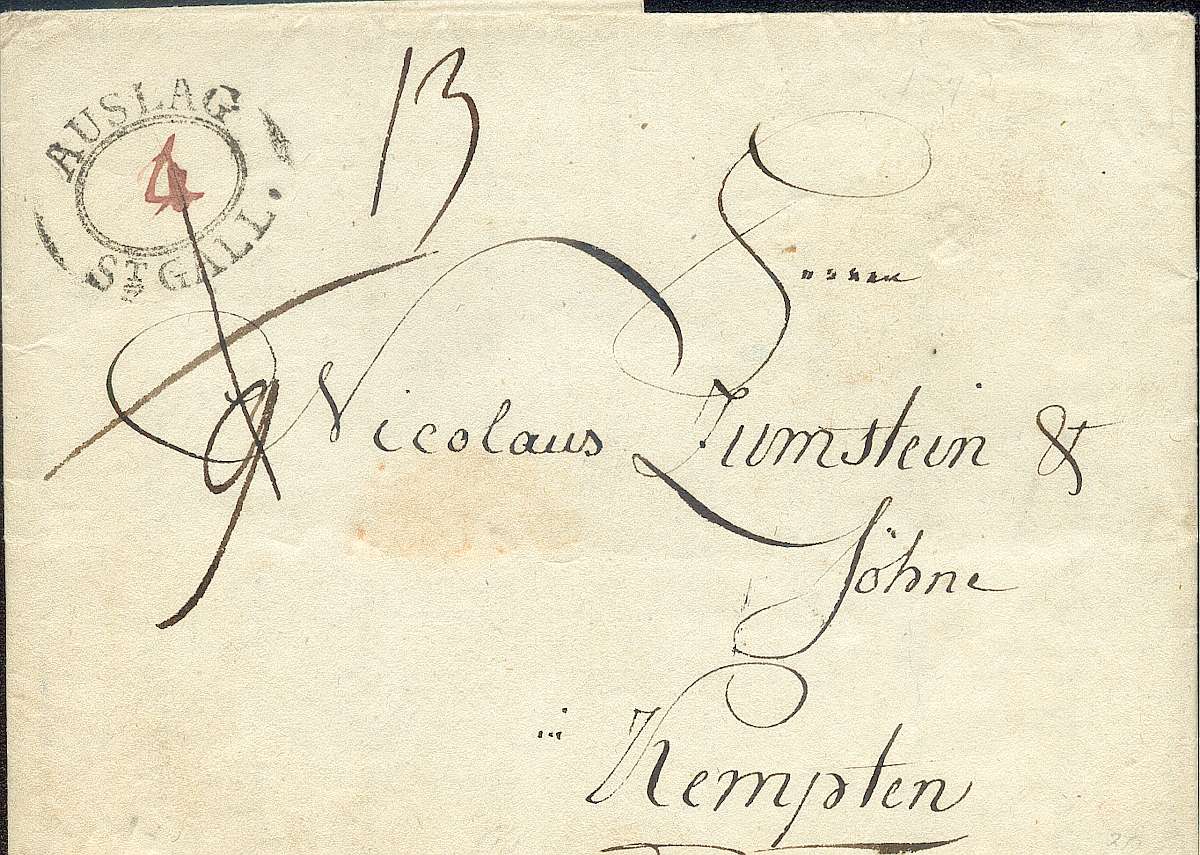 AUSLAG
4
ST GALL.
13
9
Nicolaus Zumstein &
Söhne
in
Kempten